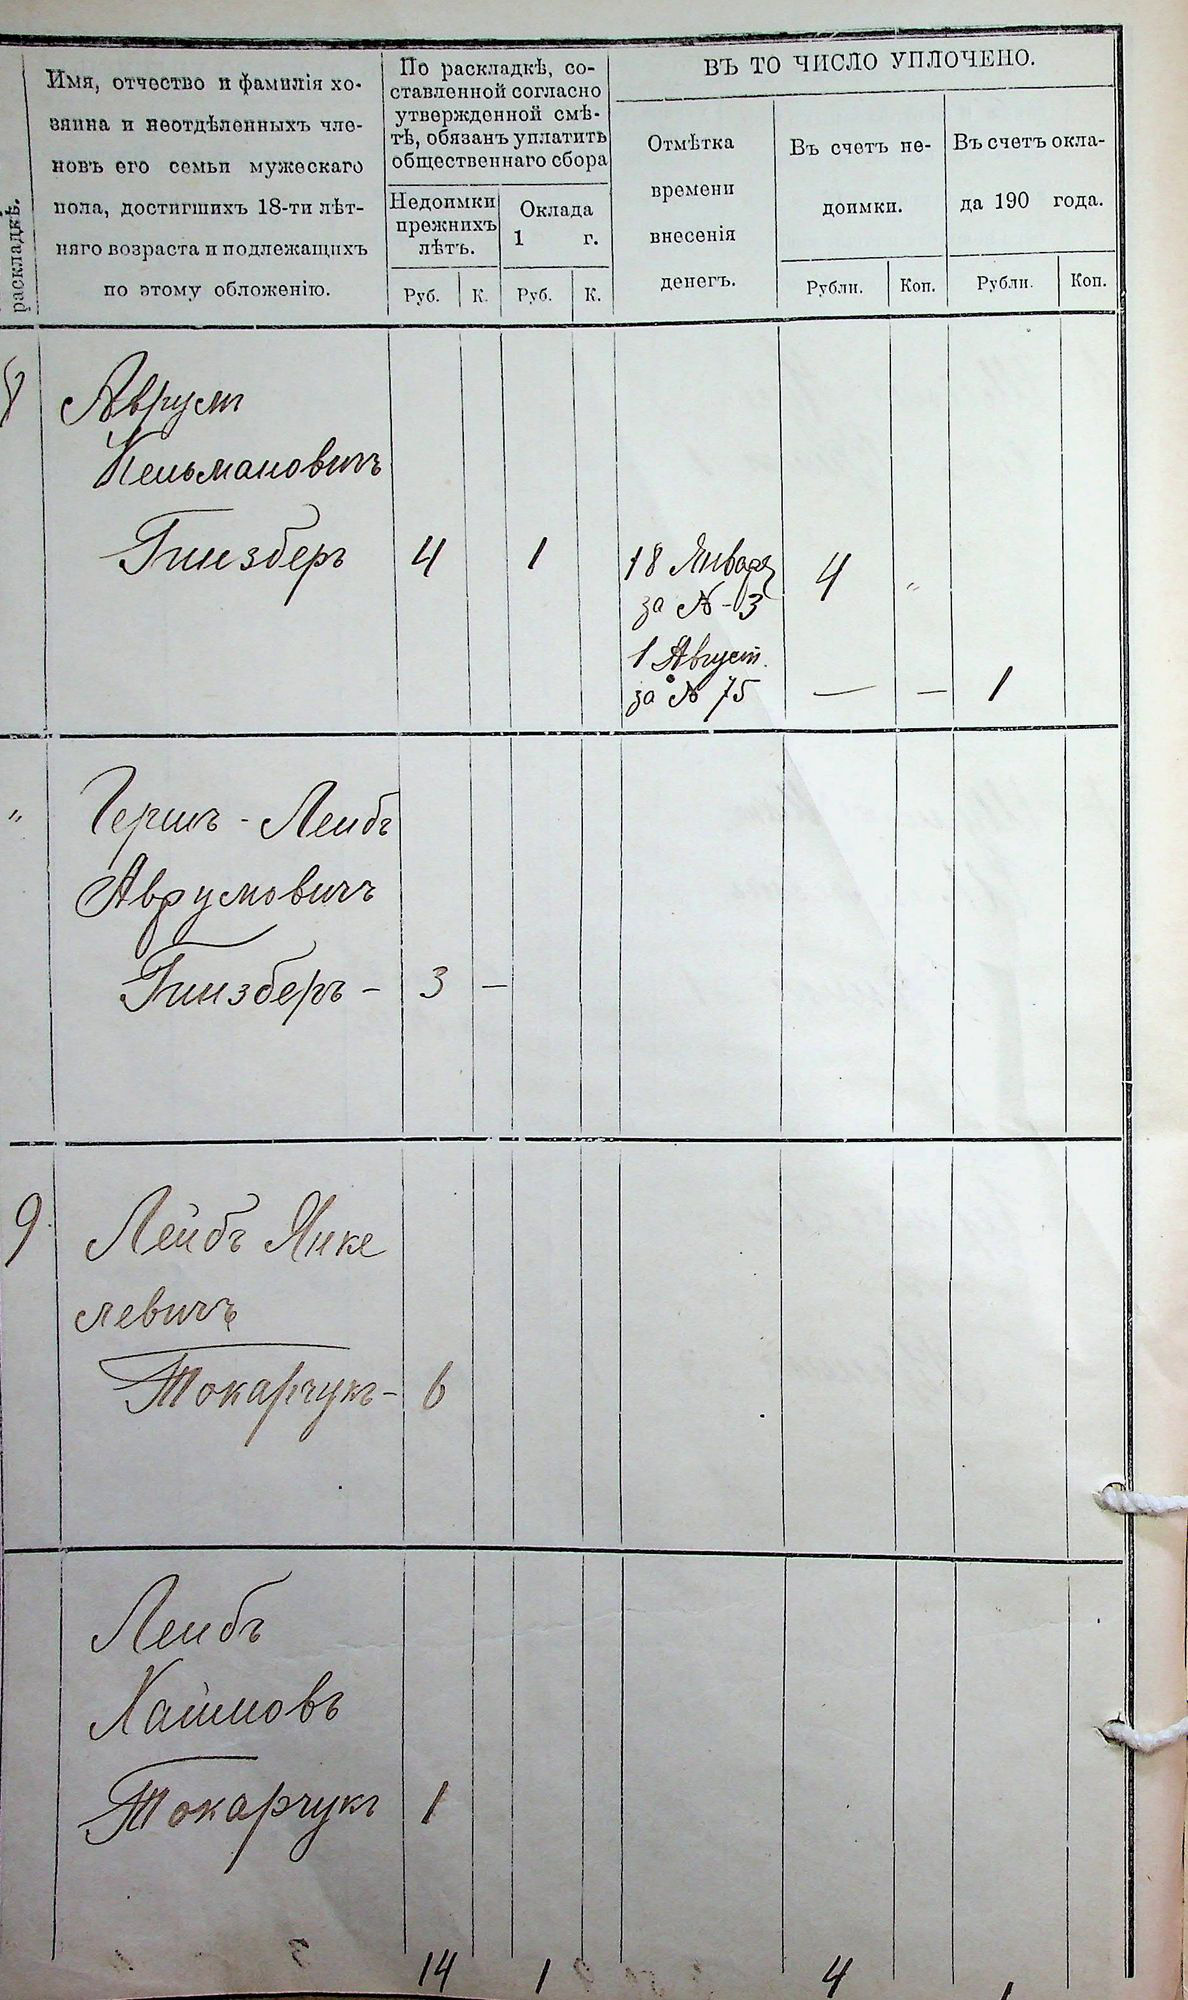 раскладкѣ.
Имя, отчество и фамилія хо-
зяина и неотдѣленныхъ чле-
новъ его семьи мужескаго
пола, достигшихъ 18-ти лѣт-
няго возраста и подлежащихъ
по этому обложенію.
По раскладкѣ, со-
ставленной согласно
утвержденной смѣ-
тѣ, обязанъ уплатить
общественнаго сбора
Недоимки
прежнихъ
лѣтъ.
Оклада
1 г.
Руб. К. Руб. К.
ВЪ ТО ЧИСЛО УПЛОЧЕНО.
Отмѣтка
времени
внесенія
денегъ.
Въ счетъ не-
доимки.
Въ счетъ окла-
да 190 года.
Рубли. Коп. Рубли. Коп.
8 Аврумъ
Кельмановичъ
Гинзберъ 4 1 18 Января 4 "
за № 3
1 Август.
за № 75 — — 1
" Гершъ-Лейбъ
Аврумовичъ
Гинзберъ - 3 —
9 Лейбъ Янке
левичъ
Токарчукъ - 6
Лейбъ
Хаимовъ
Токарчукъ 1
14 1 4 1